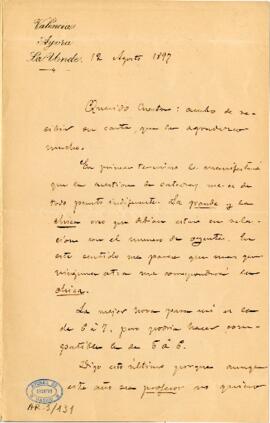 Valencia
Ayora
La Vende. 12 Agosto 1897
Querido Carlos: acabo de re-
cibir su carta, que le agradezco
mucho.
En primer termino le manifestaré
que la cuestion de catedras me es de
todo punto indiferente. La grande y la
chica creo que debian estar en rela-
cion con el numero de oyentes. En
este sentido me parece que mas que
ninguna otra me corresponderá la
chica.
La mejor hora para mi es la
de 6 á 7, pero podria hacer com-
patible la de 5 á 6.
Digo esto último porque aunque
este año sea profesor no quiero
AR-3/131